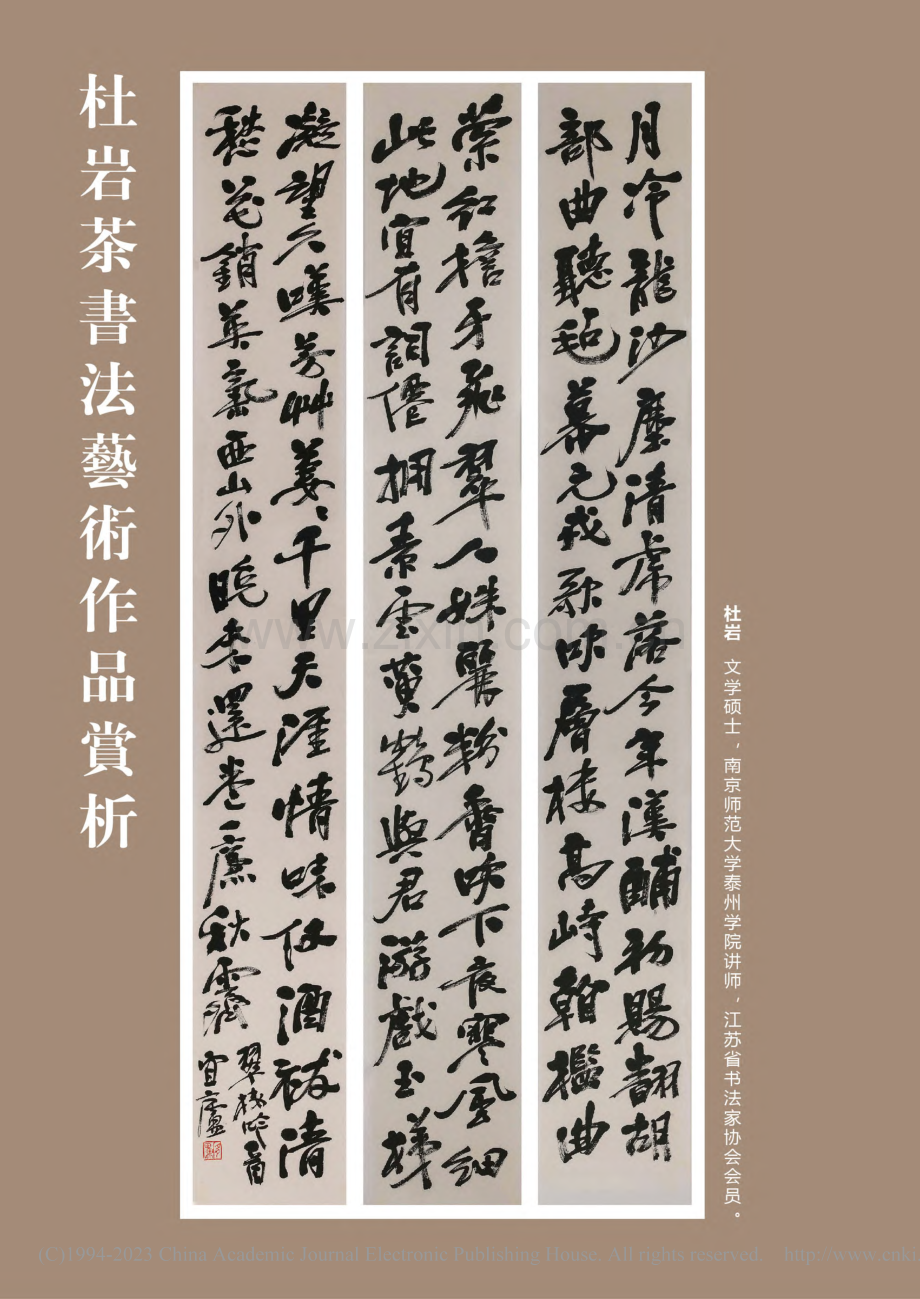 杜岩茶書法藝術作品賞析
月冷龍沙塵清虎落今年漢酺初賜翻胡
部曲聽毡幕元戎歌吹層樓高峙看檻曲
縈紅檐牙飛翠人姝麗粉香吹下夜寒風細
此地宜有詞僊拥素雲黄鶴與君游戲玉梯
凝望久嘆芳艸萋々千里天涯情味仗酒祓清
愁花銷英氣西山外晚來還卷一簾秋霽
翠樓吟一首
宜廬
杜岩 文学硕士，南京师范大学泰州学院讲师，江苏省书法家协会会员。
(C)1994-2023 China Academic Journal Electronic Publishing House. All rights reserved. http://www.cnki